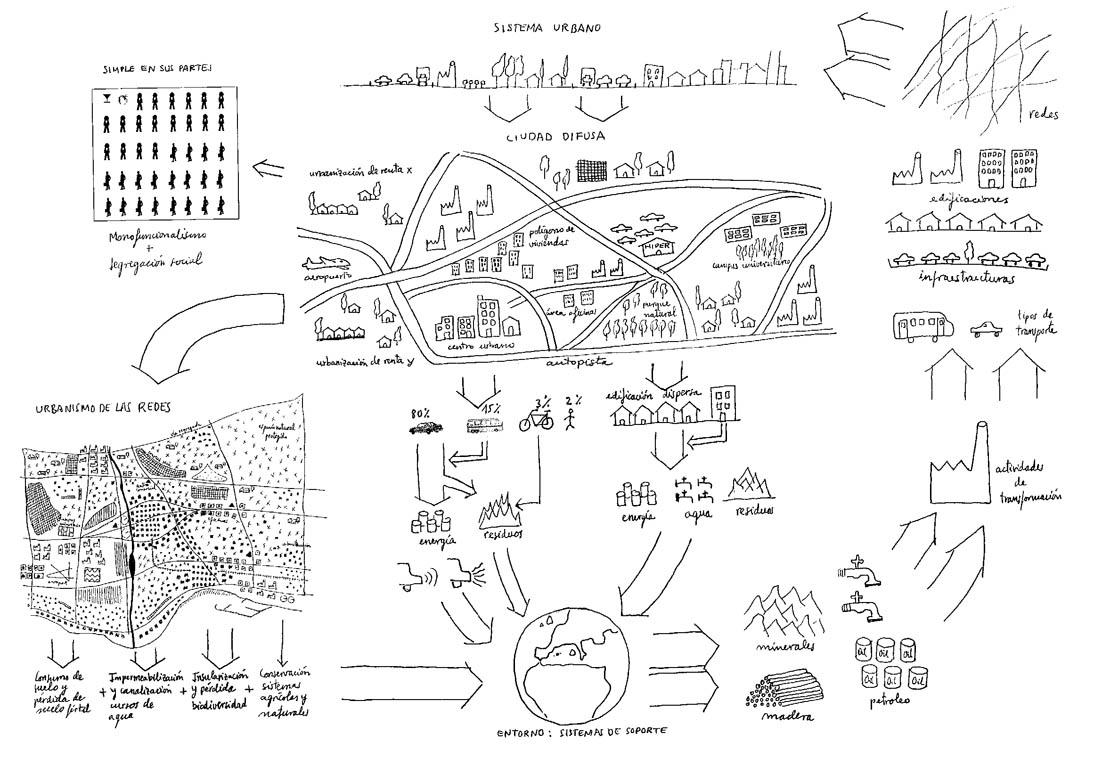 SISTEMA URBANO
SIMPLE EN SUS PARTES
redes
CIUDAD DIFUSA
urbanización de renta x
edificaciones
Monofuncionalismo
+
segregación social
polígono de
viviendas
HIPER
campus universitario
aeropuerto
infraestructuras
área oficinas
parque
natural
tipos de
transporte
centro urbano
urbanización de renta y
autopista
URBANISMO DE LAS REDES
80%
15%
3%
2%
edificación dispersa
actividades
de
transformación
energía
residuos
energía
agua
residuos
minerales
oil oil oil
oil oil oil
petroleo
madera
Consumo de
suelo y
pérdida de
suelo fértil
+
Impermeabilización
y canalización
cursos de
agua
+
Insularización
y pérdida
biodiversidad
+
Conservación
sistemas
agrícolas y
naturales
ENTORNO: SISTEMAS DE SOPORTE